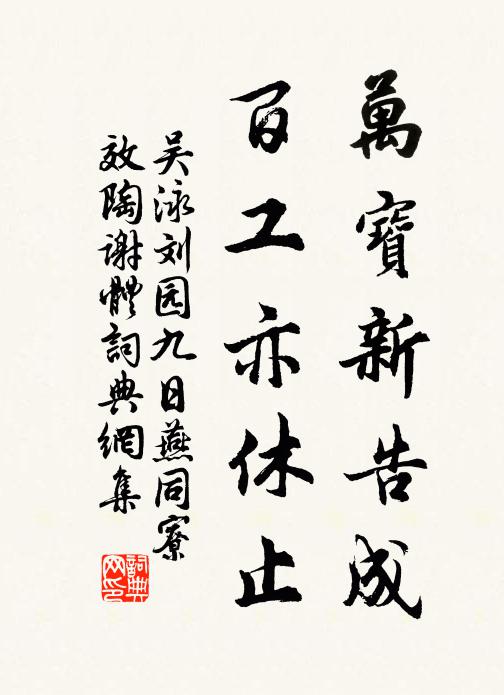 萬寶新告成
百工亦休止
吴泳刘园九日燕同寮
效陶谢體詞典網集
詞典
网印